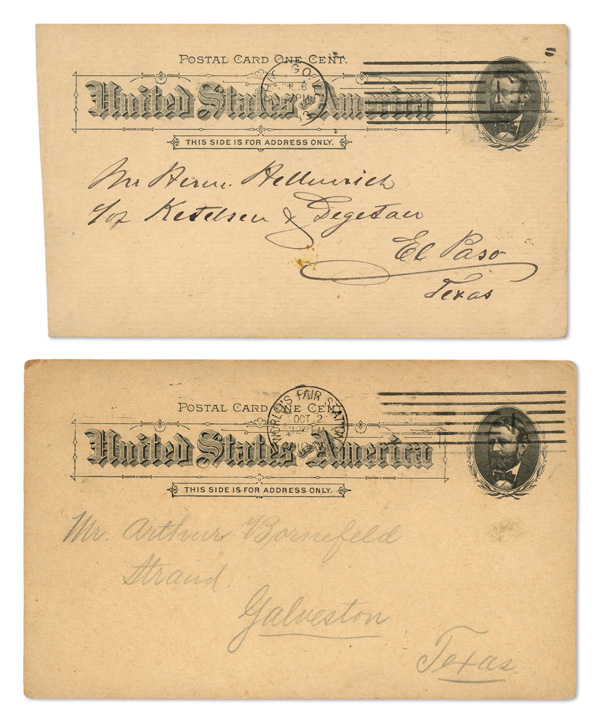 POSTAL CARD ONE CENT.
United States of America
THIS SIDE IS FOR ADDRESS ONLY.
Mr Herm. Hellmrich
c/o Ketelsen & Degetau
El Paso
Texas
WORLD'S FAIR STATION
OCT 2
POSTAL CARD ONE CENT.
United States of America
THIS SIDE IS FOR ADDRESS ONLY.
Mr. Arthur Bornefeld
Strand.
Galveston
Texas